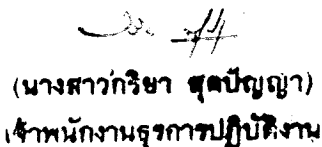 (นางสาวกริยา สุดปัญญา)
เจ้าพนักงานธุรการปฏิบัติงาน